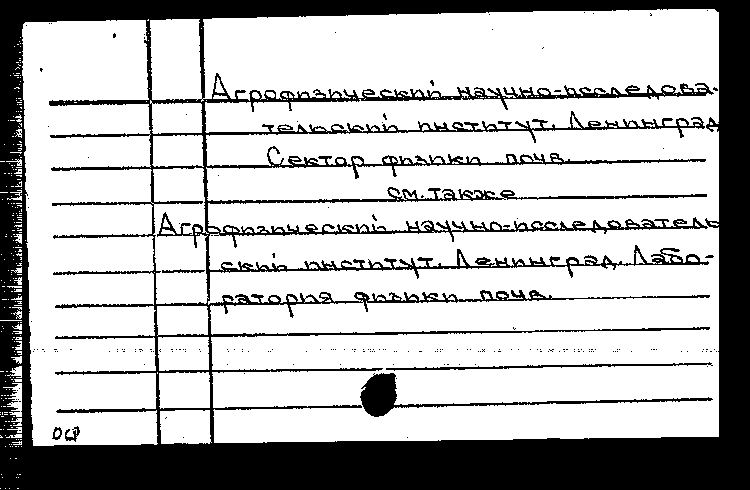 Агрофизический научно-исследова-
тельский институт. Ленинград
Сектор физики почв.
см. также
Агрофизический научно-исследователь
ский институт. Ленинград. Лабо-
ратория физики почв.
ОСР